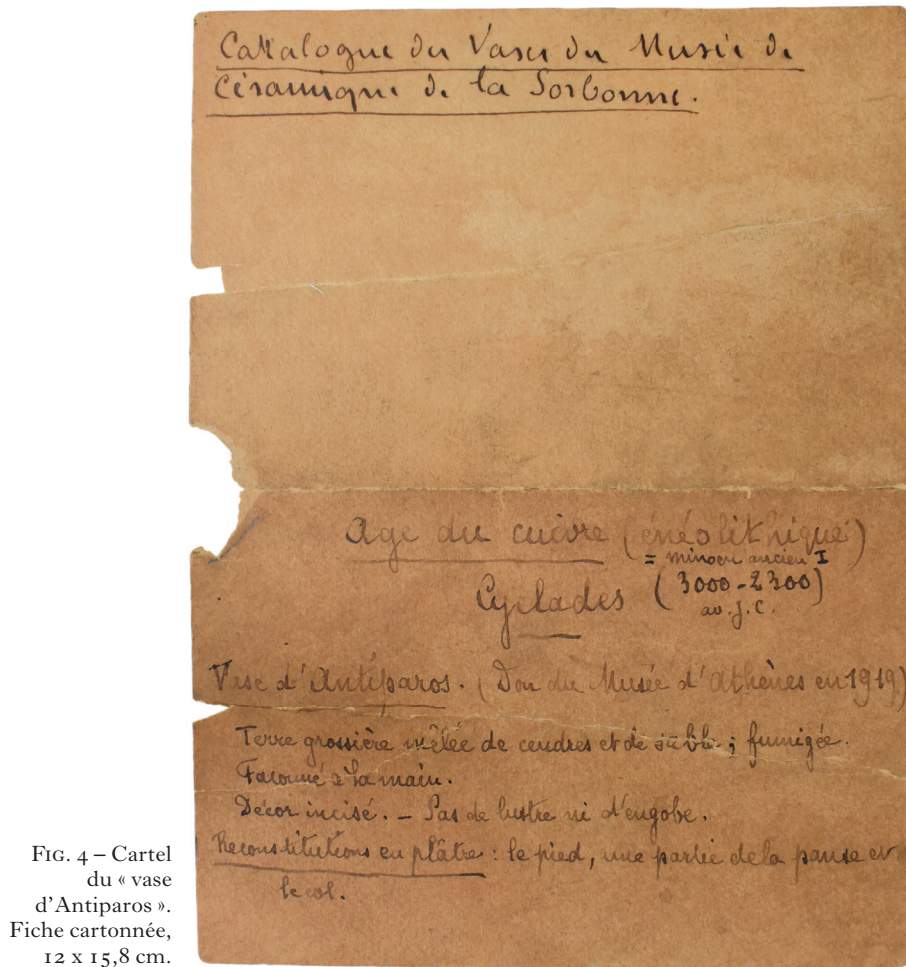 Catalogue des Vases du Musée de
Céramique de la Sorbonne.
Age du cuivre (énéolithique)
= minoen ancien I
Cyclades (3000-2300)
av. J. C.
Vase d'Antiparos. (Don du Musée d'Athènes en 1919)
Terre grossière mêlée de cendres et de sable ; fumigée.
Façonné à la main.
Décor incisé. – Pas de lustre ni d'engobe.
Reconstitutions en plâtre : le pied, une partie de la panse et
le col.
FIG. 4 – Cartel
du « vase
d'Antiparos ».
Fiche cartonnée,
12 x 15,8 cm.